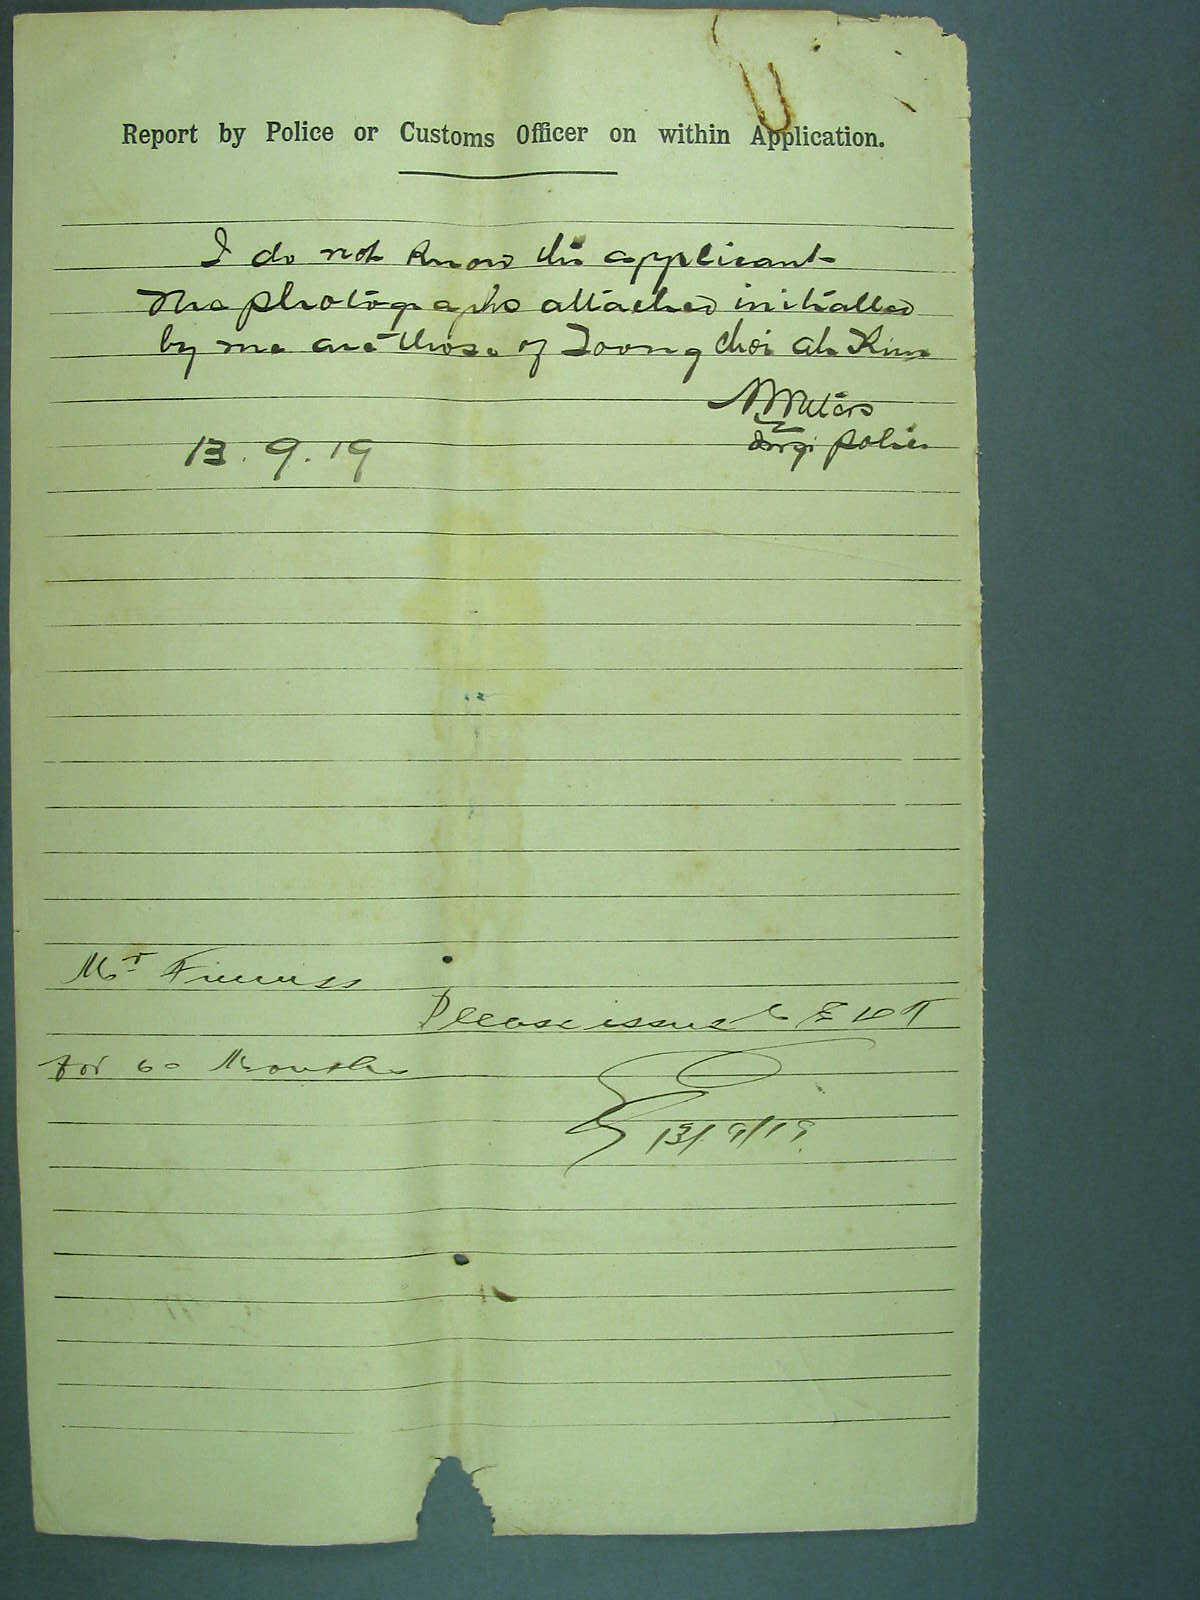 Report by Police or Customs Officer on within Application.
I do not know the applicant
The photographs attached initialled
by me are those of Toong Choi ah Kim
Sergt Police
13.9.19
Mr Finniss
Please issue C E D T
for 60 Months
13/9/19